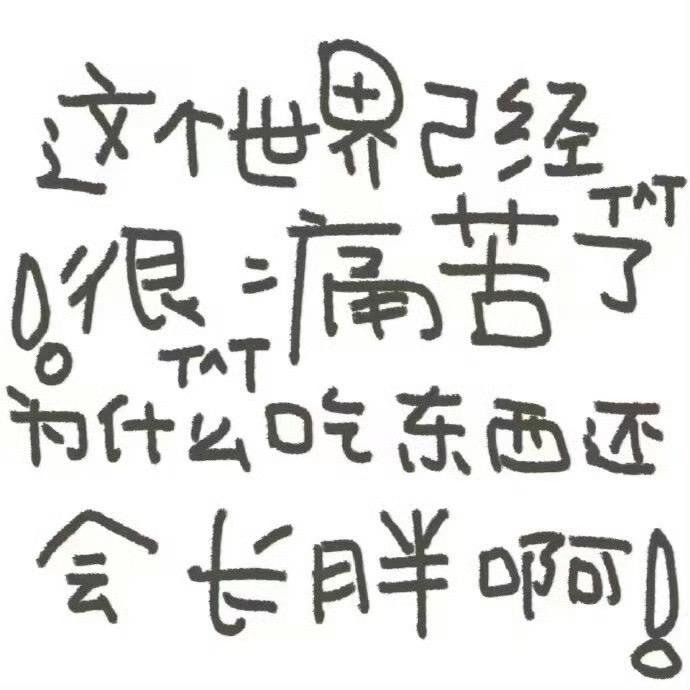 这个世界已经
！很痛苦了T^T
TAT
为什么吃东西还
会长胖啊！